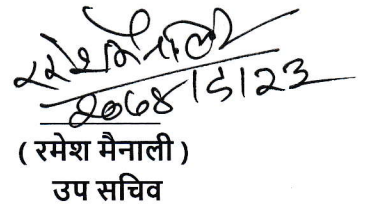 रमेश मैनाली
२०७४।८।२३
( रमेश मैनाली )
उप सचिव